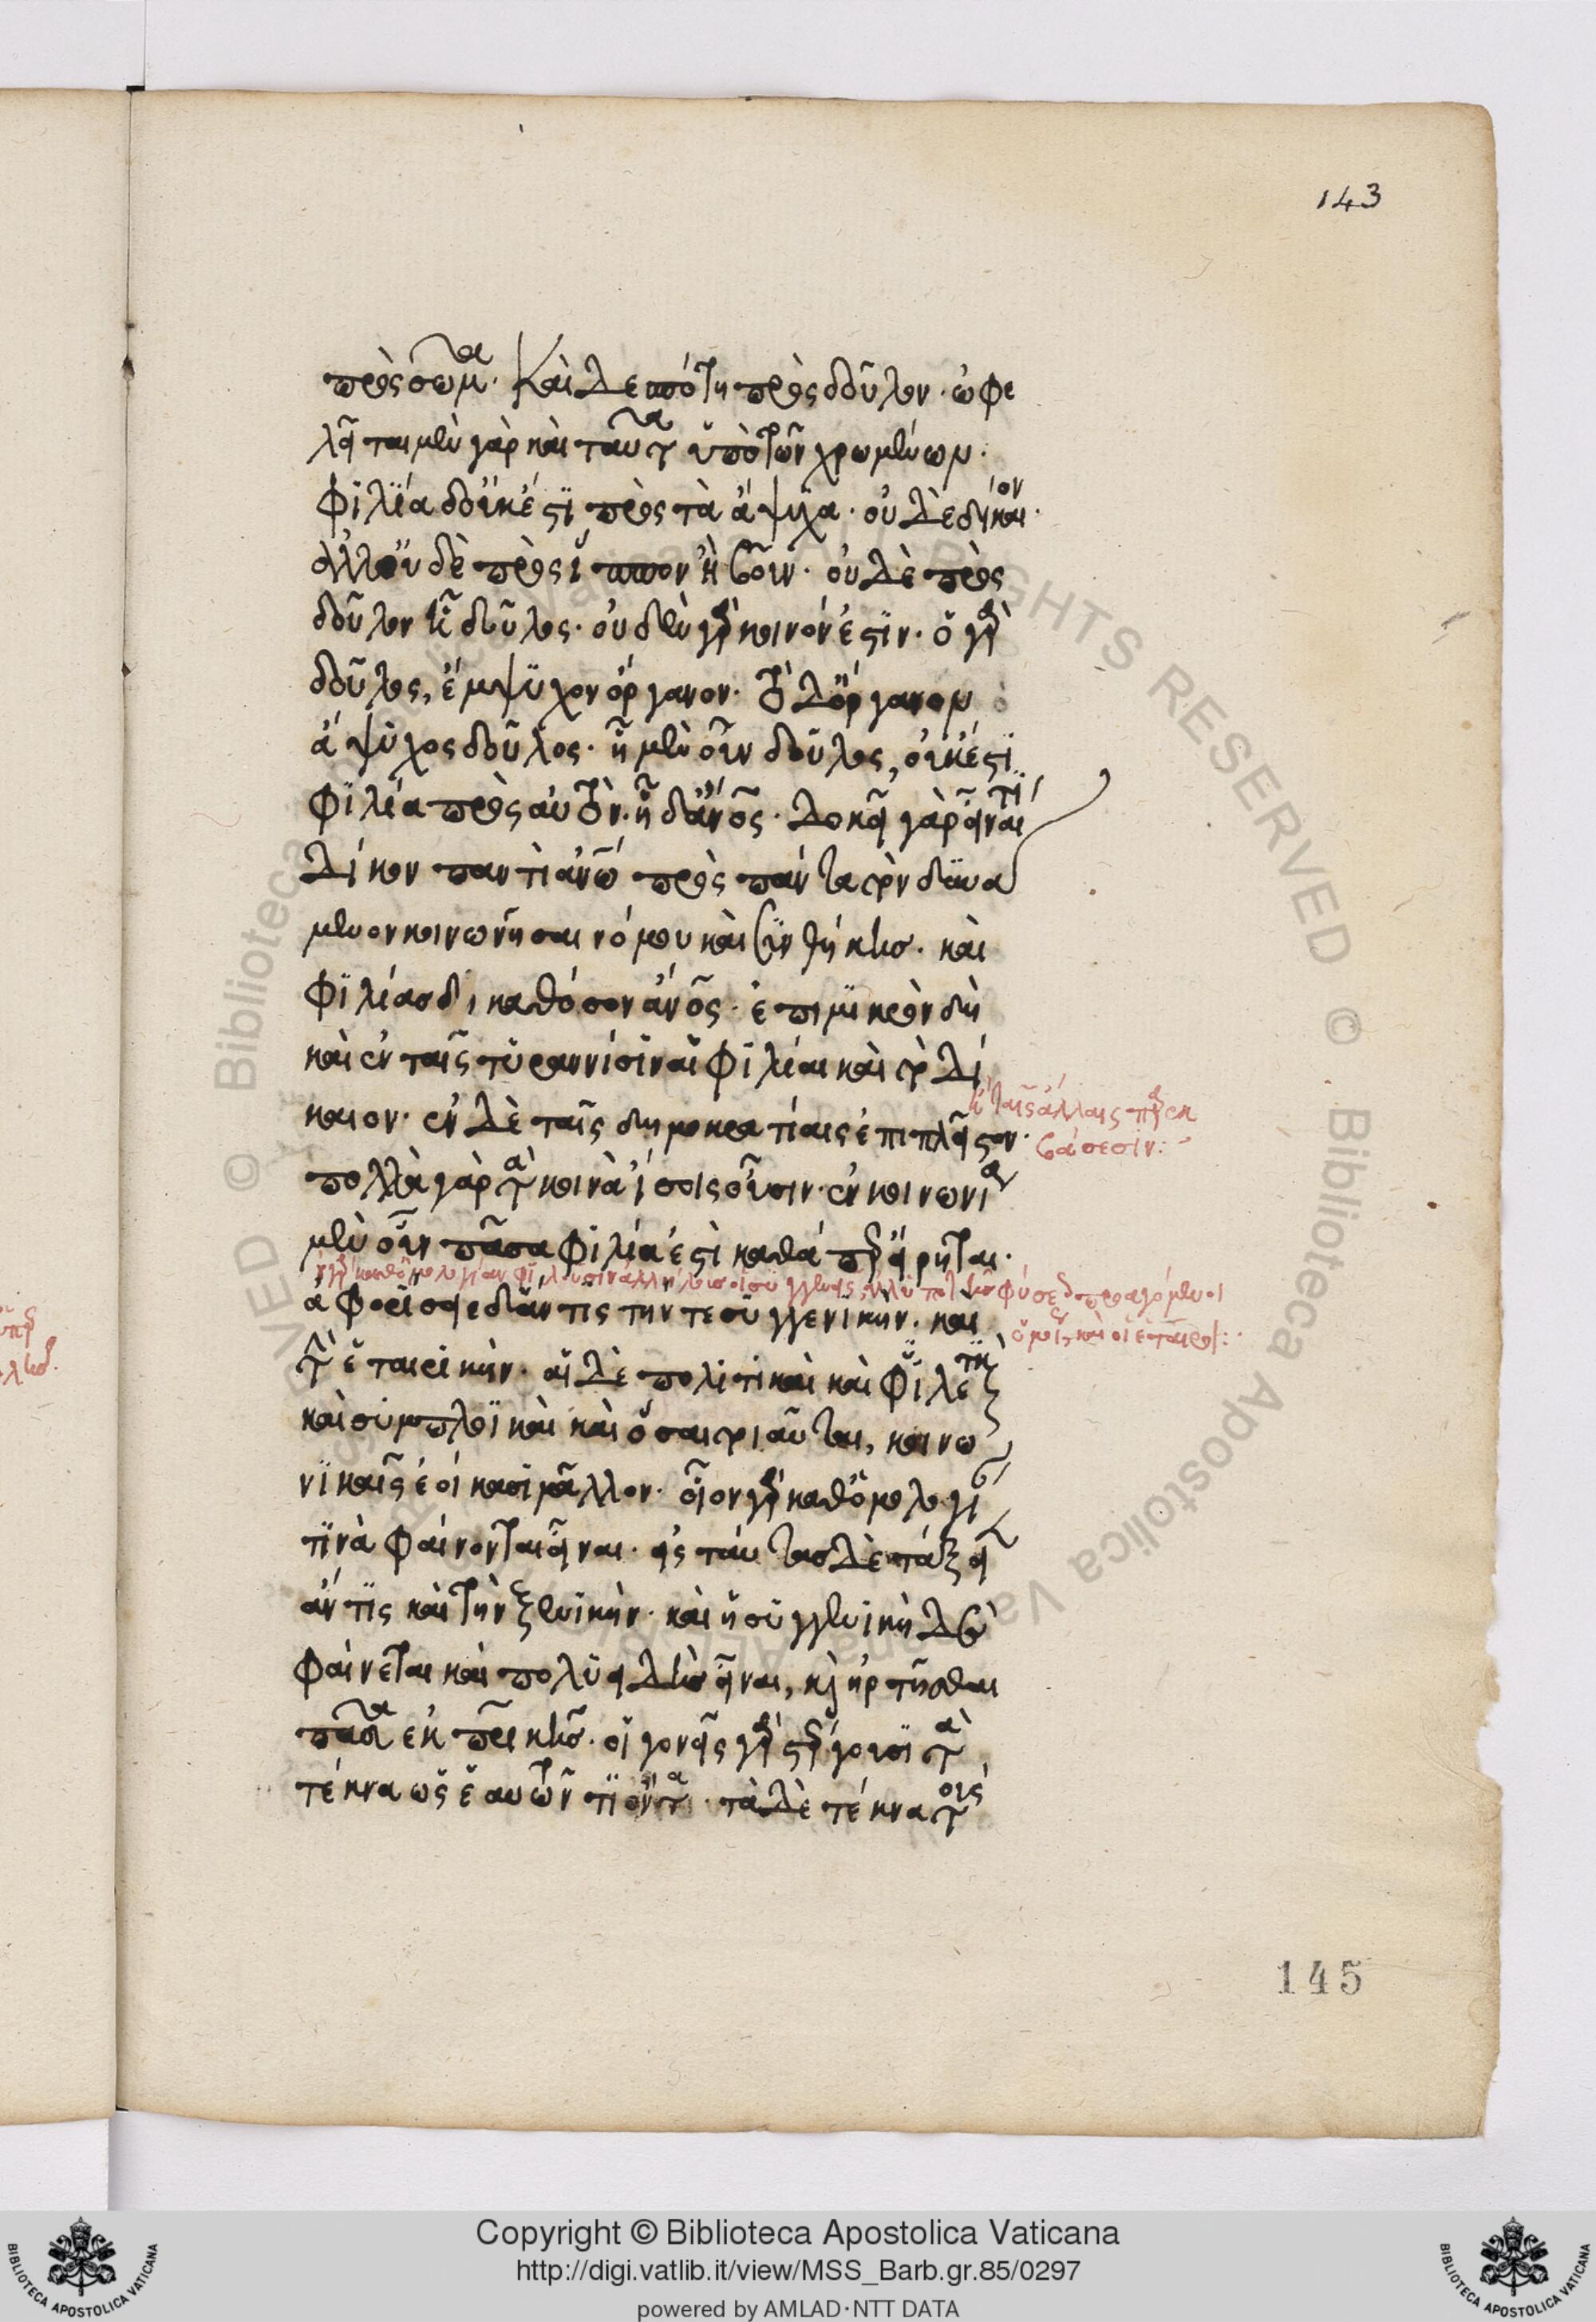 143
πρὸς σῶμα. καὶ δεσπότη πρὸς δοῦλον. ὠφε
λεῖται μὲν γὰρ καὶ ταῦτα ὑπὸ τῶν χρωμένων.
φιλία δ' οὐκ ἔστι πρὸς τὰ ἄψυχα. οὐδὲ δίκαιον.
ἀλλ' οὐδὲ πρὸς ἵππον ἢ βοῦν. οὐδὲ πρὸς
δοῦλον ᾗ δοῦλος. οὐδὲν γὰρ κοινόν ἐστιν. ὁ γὰρ
δοῦλος, ἔμψυχον ὄργανον. τὸ δ' ὄργανον
ἄψυχος δοῦλος. ᾗ μὲν οὖν δοῦλος, οὐκ ἔστι
φιλία πρὸς αὐτόν. ᾗ δ' ἄνος. δοκεῖ γὰρ εἶναί τι
δίκαιον παντὶ ἀνω πρὸς πάντα τὸν δυνά
μενον κοινωνῆσαι νόμου καὶ συνθήκης. καὶ
φιλίας δὴ καθόσον ἄνος. ἐπὶ μικρὸν δὴ
καὶ ἐν ταῖς τυραννίσιν αἱ φιλίαι καὶ τὸ δί
καιον. ἐν δὲ ταῖς δημοκρατίαις ἐπιπλεῖστον.
ἢ ταῖς ἄλλαις παρεκ
βάσεσιν:
πολλὰ γὰρ τὰ κοινὰ ἴσοις οὖσιν. ἐν κοινωνίᾳ
μὲν οὖν πᾶσα φιλία ἐστὶ καθάπερ εἴρηται.
ἀφορίσειε δ' ἄν τις τήν τε συγγενικὴν. καὶ
ὅμως καὶ οἱ ἑταῖροι:
τὴν ἑταιρικήν. αἱ δὲ πολιτικαὶ καὶ φυλετικαὶ
καὶ συμπλοϊκαὶ καὶ ὅσαι τοιαῦται, κοινω
νικαῖς ἐοίκασι μᾶλλον. οἷον γὰρ καθ' ὁμολογίαν
τινὰ φαίνονται εἶναι. εἰς ταύτας δὲ τάξειεν
ἄν τις καὶ τὴν ξενικήν. καὶ ἡ συγγενικὴ δὲ
φαίνεται καὶ πολυειδὴς εἶναι, καὶ ἠρτῆσθαι
πᾶσα ἐκ πρικῆς. οἱ γονεῖς γὰρ στέργουσι τὰ
τέκνα ὡς ἑαυτῶν τι ὄντα. τὰ δὲ τέκνα τοὺς
145
Copyright © Biblioteca Apostolica Vaticana
http://digi.vatlib.it/view/MSS_Barb.gr.85/0297
powered by AMLAD·NTT DATA